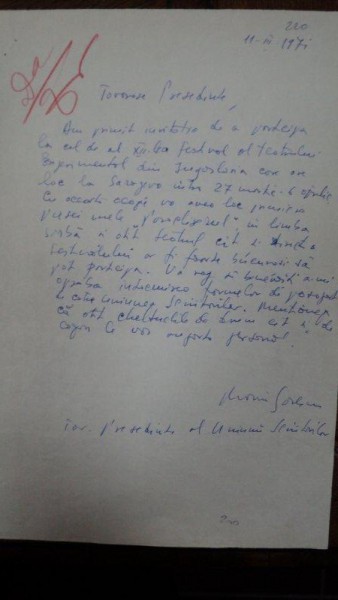 220
11-II 1971
Da
Tovarase Presedinte,
Am primit invitatia de a participa
la cel de al XII-lea Festival al Teatrului
Experimental din Jugoslavia care are
loc la Sarajevo intre 27 martie - 6 aprilie
Cu aceasta ocazie va avea loc premiera
piesei mele "Paraclisierul" in limba
sirbă si atit teatrul cit si Directia
festivalului ar fi foarte bucurosi să
pot participa. Vă rog să binevoiti a-mi
aproba intocmirea formelor de pasaport
de către Uniunea Scriitorilor. Mentionez
că atit cheltuielile de drum cit si de
le voi suporta personal.
Marin Sorescu
Tov. Presedinte al Uniunii Scriitorilor